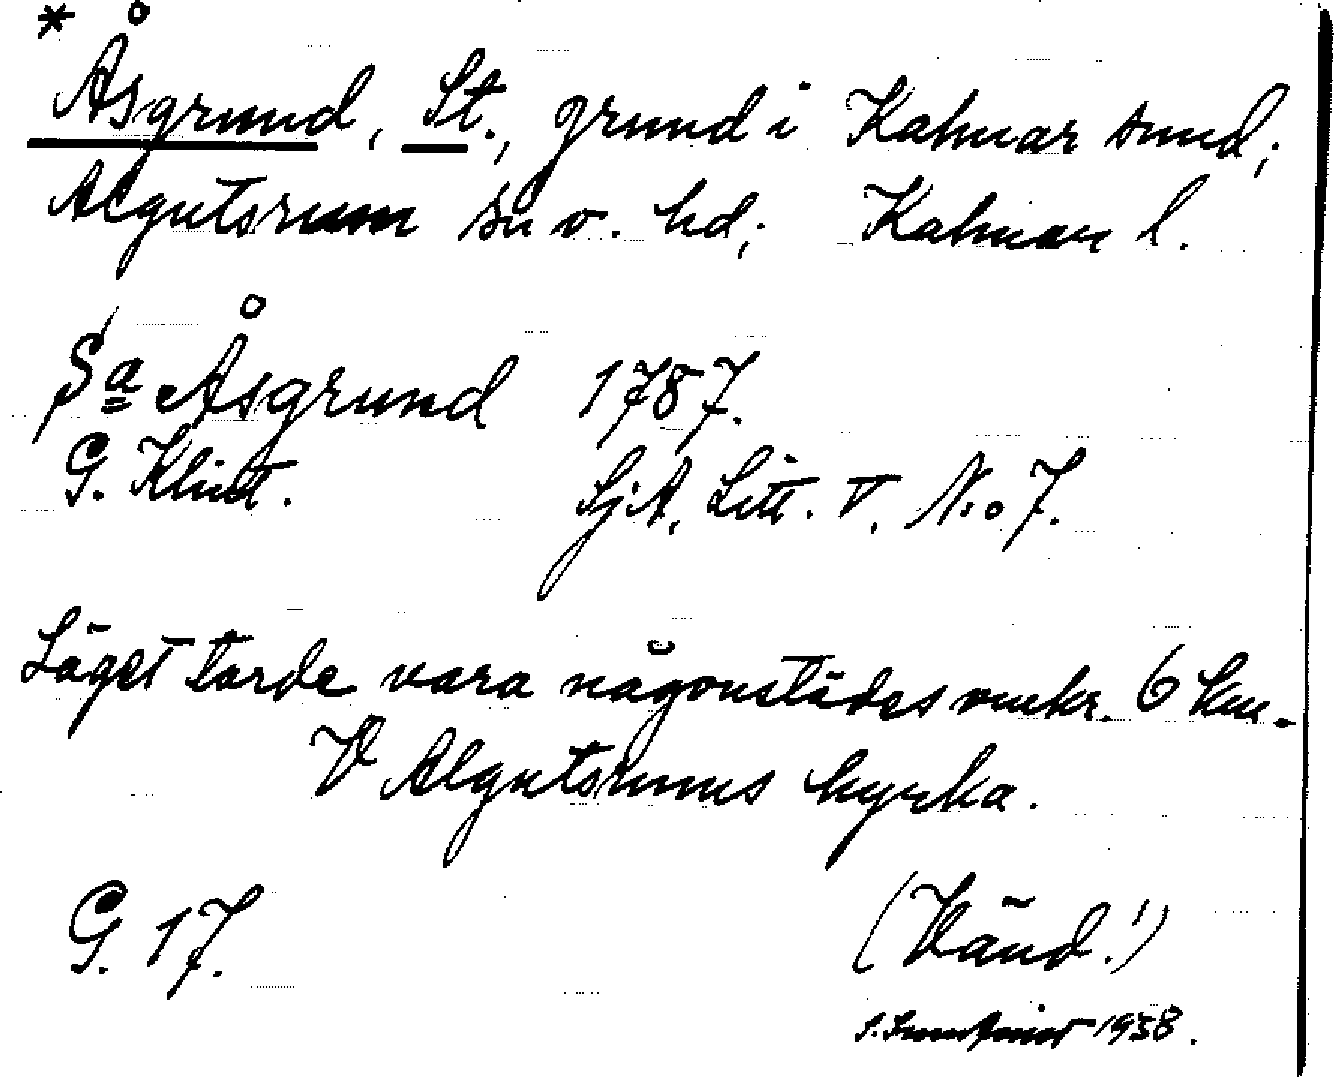 * Åsgrund, St., grund i Kalmar sund;
Algutsrum sn o. hd; Kalmar l.
Sa Åsgrund 1787.
G. Klint. SjA, Litt. V, N:o 7.
Läget torde vara någonstädes omkr. 6 km.
V Algutsrums kyrka.
G. 17. (Vänd!)
1938.